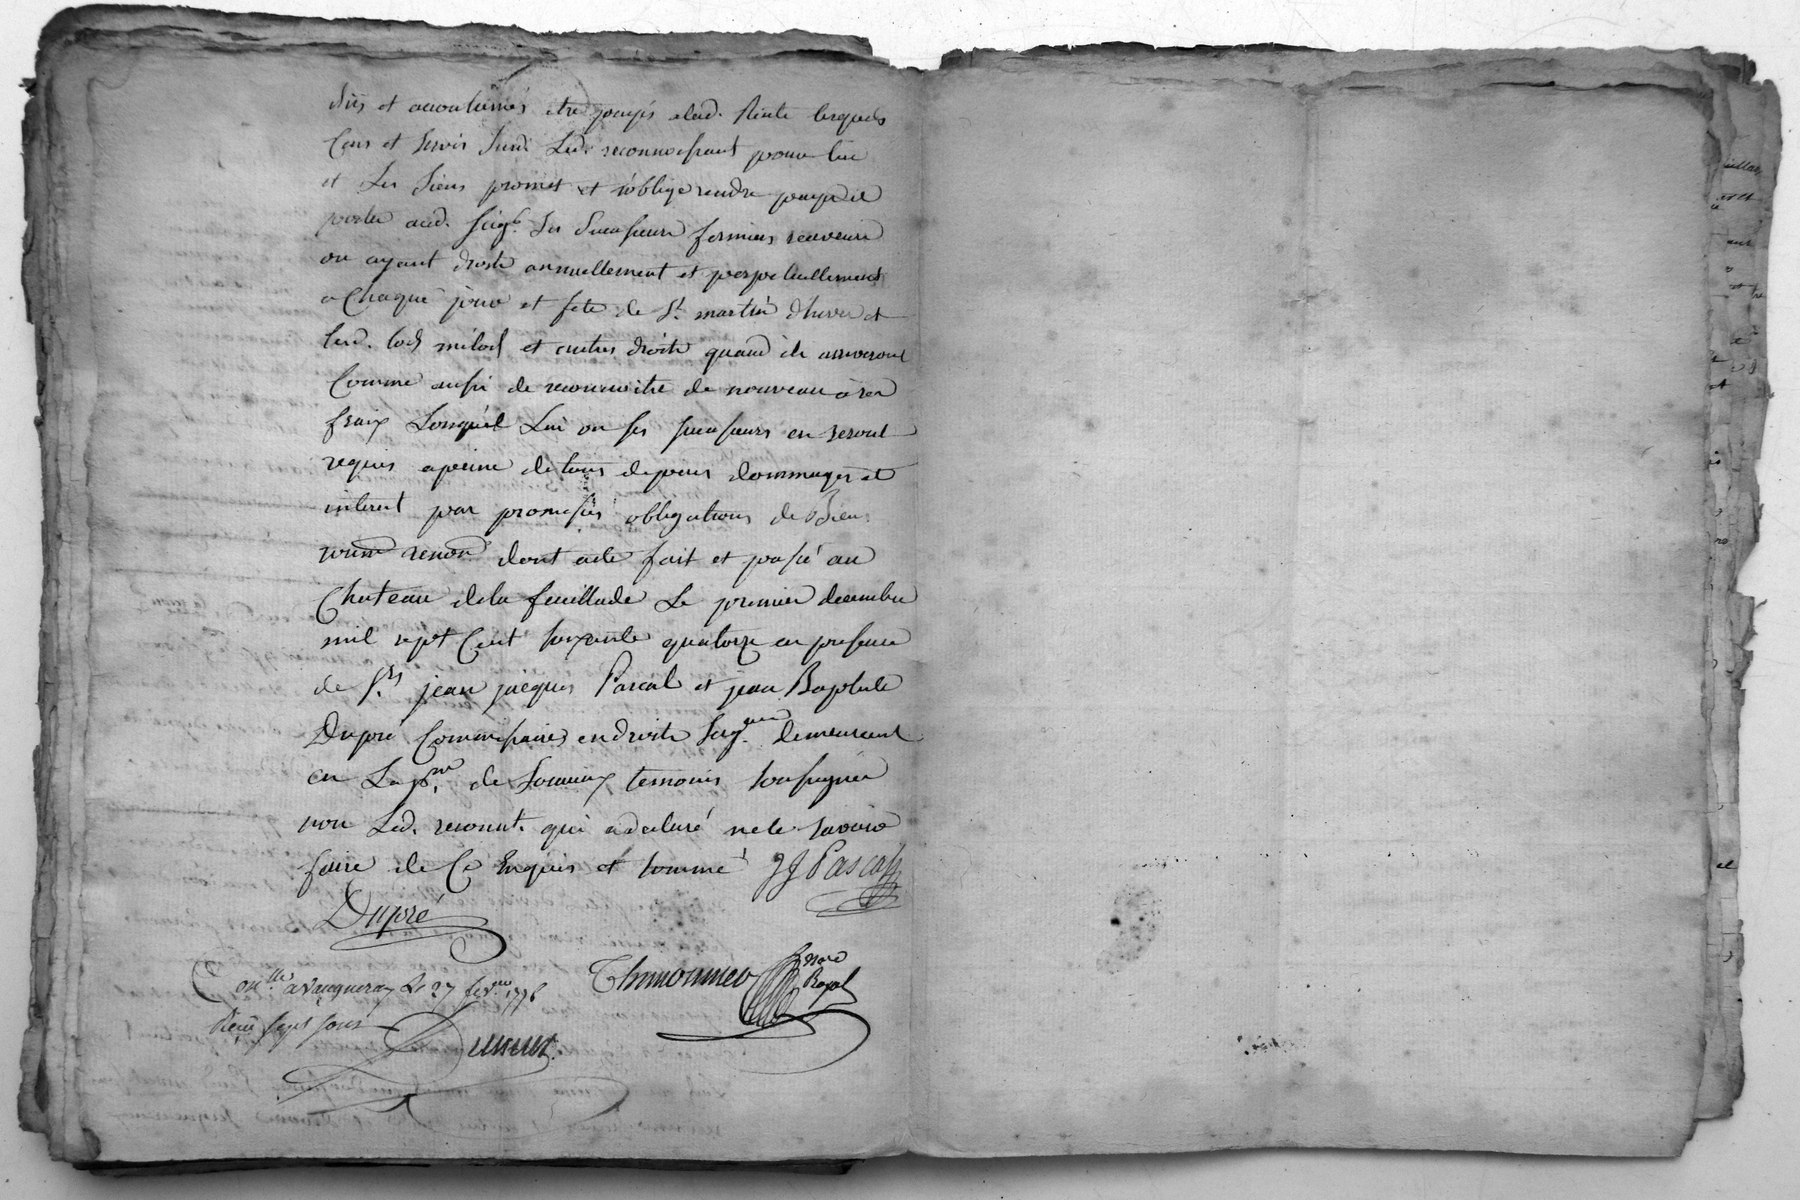 dus et accoutumés etre payés alad. Rente lesquels
Cens et servis sund. Led. reconnoissant pour lui
et Les siens promet et s'obblige rendre payer et
porter aud. seigr. ses successeurs fermiers receveurs
ou ayant droits annuellement et perpetuellement
a Chaque jour et fete de st. martin d'hiver et
lesd. lods milods et autres droits quand ils arriveront
Comme aussi de reconnoitre de nouveau à ses
fraix Lorsqu'il Lui ou ses successeurs en seront
requis a peine de tous depens dommages et
interest par promesses obbligations de Biens
soumon renon dont acte fait et passé au
Chateau de la feuillade Le premier decembre
mil sept Cent soixante quatorze en presence
de srs. jean jacques Pascal et jean Baptiste
Dupré Commissaires en droits seigaux demeurant
en La psse. de temoins soussignés
non Led. reconnt. qui a declaré ne le savoir
faire de Ce Enquis et sommé JJ Pascal
Dupré
Conllé a Le 27 fevrier 1775
Thimonnier nore Royal
Reçu sept sous